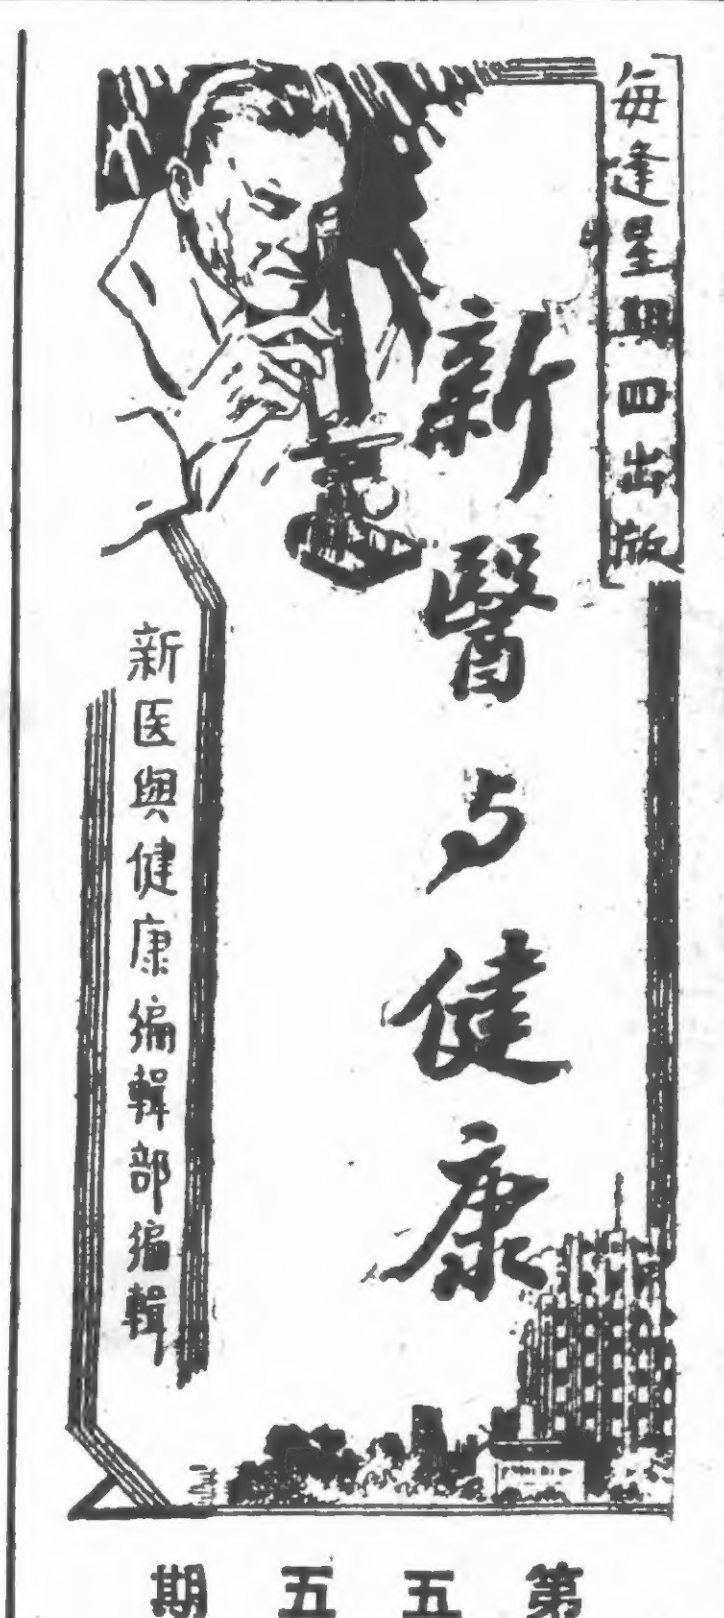 每逢星期四出版
新醫与健康
新医與健康编輯部编輯
第五五期